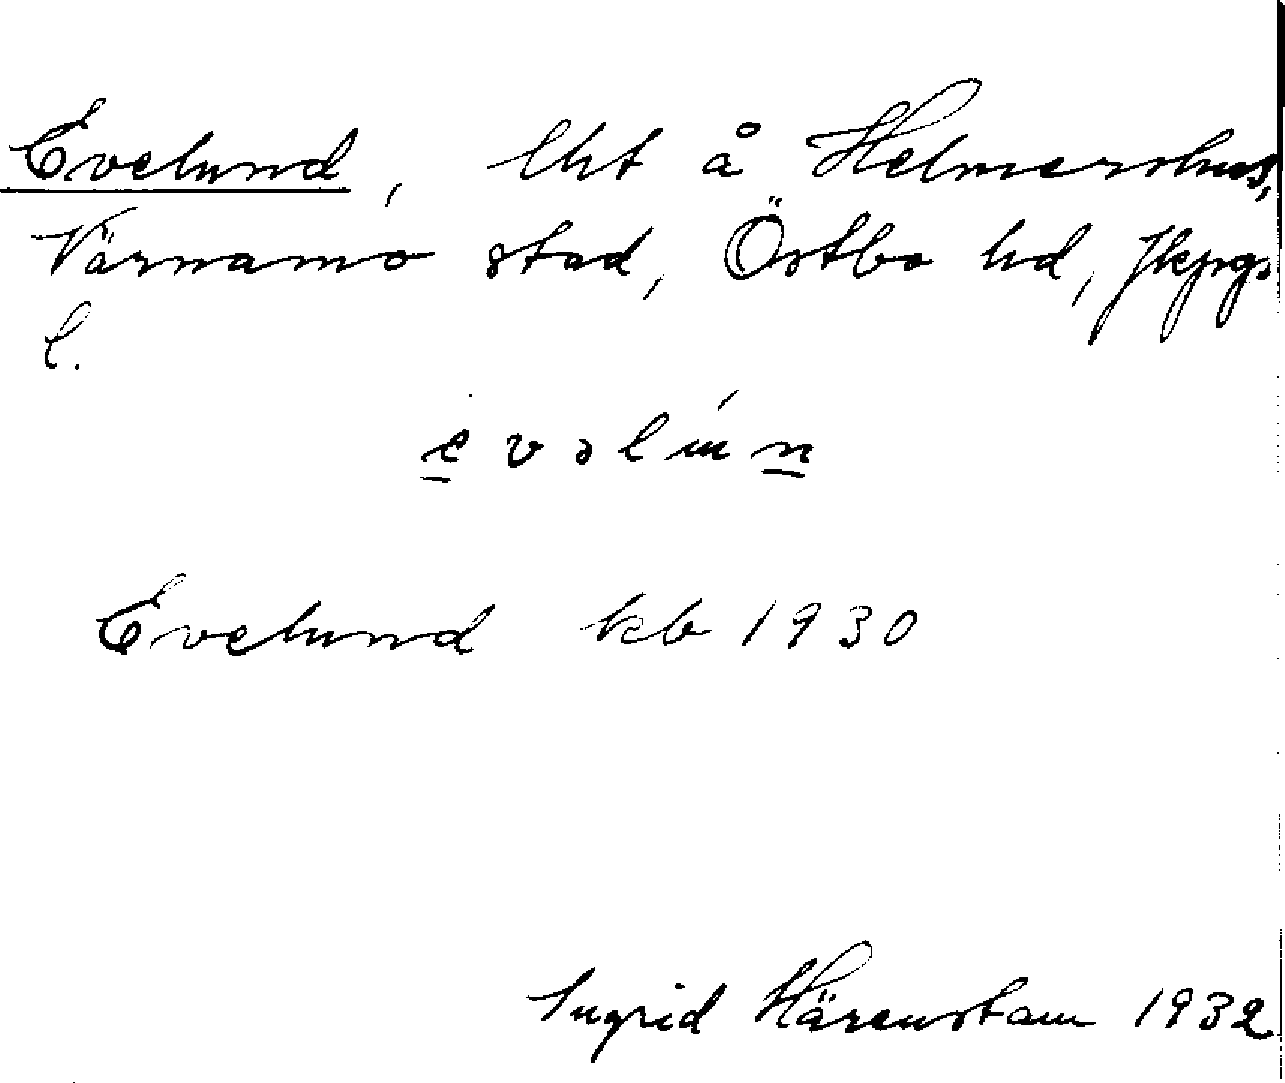 Evelund, lht å Helmershus,
Värnamo stad, Östbo hd, Jkpgs
l.
Evelund kb 1930
Ingrid Härenstam 1932